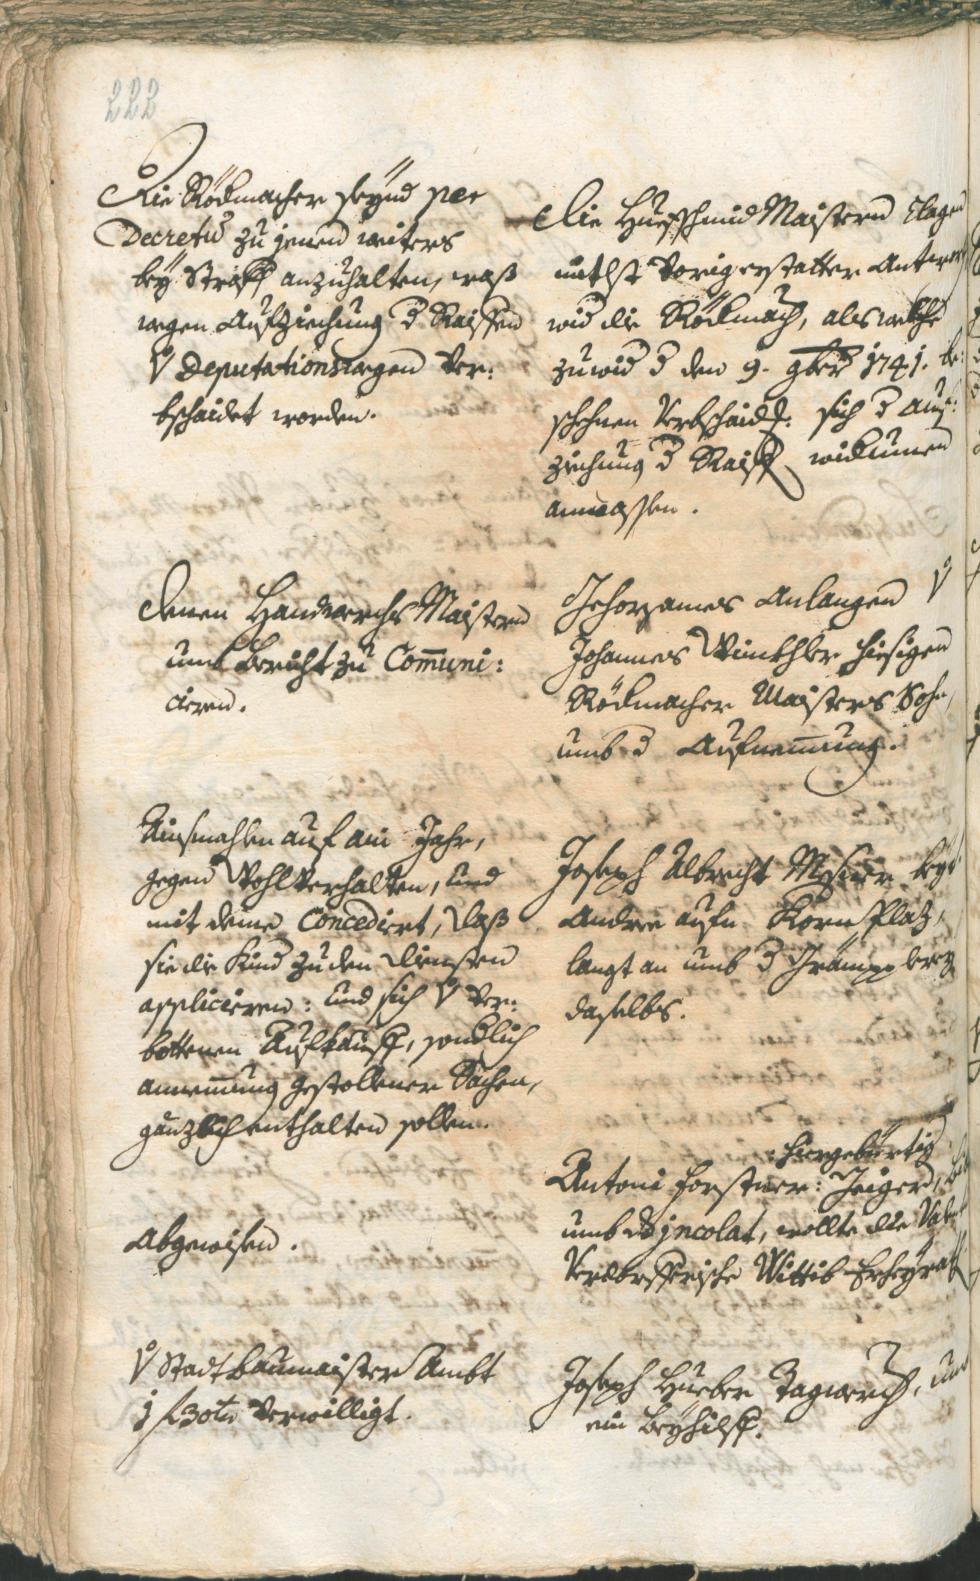 222
Die Rödmacher seÿnd per
Decretũ zu jenem weiters
beÿ Straff anzuhalten, waß
wegen Aufziechung d Raiffen
v Deputationswegen ver:
bschaidet worden.
Die Huefschmid Maistern clagen
mitlst vorig erstatter Antwort
wid die Rödmach, als welche
zuwid d den 9. 9ber 1741. be:
schehnen Verbschaidg. sich d auf:
ziehung d Raiff widrumen
anmassen.
Denen Handwerchs Maistern
umb Bericht zu Com̃uni:
cieren.
Gehorsames Anlangen v
Johannes Winkhler hiesigen
Rödmacher Maisters Sohn,
umb d Aufnem̃ung.
Einsmahlen auf ain Jahr,
gegen Wohlverhalten, und
mit deme Concediert, daß
sie die Kind zu den diensten
applicieren: und sich v ver:
bottenen Aufkauff, sondlich
annem̃ung gestollener Sachen,
gänzlich enthalten sollen.
Joseph Albrecht Mesner beÿ
Andree aufn Korn Plaz,
langt an umb d Trämpplerey
daselbs.
Abgewisen.
: hiergebürtig
Antoni Forstner: Jeiger,
umb ds jncolat, wollte die
Verdorfferische Wittib Erheÿrath
v Stadtbaumaister Ambt
1 f 30 kr verwilligt.
Joseph Hueber Tagwerch, umb
ein Beÿhilff.